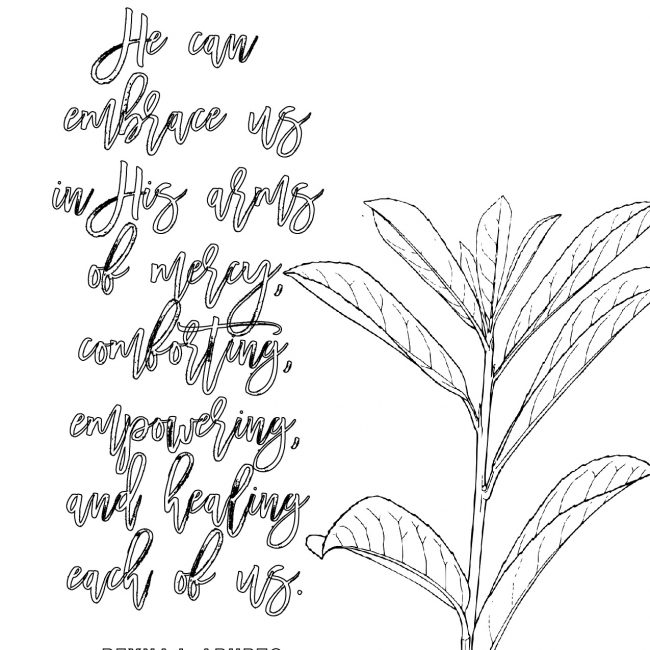 He can
embrace us
in His arms
of mercy,
comforting,
empowering,
and healing
each of us.